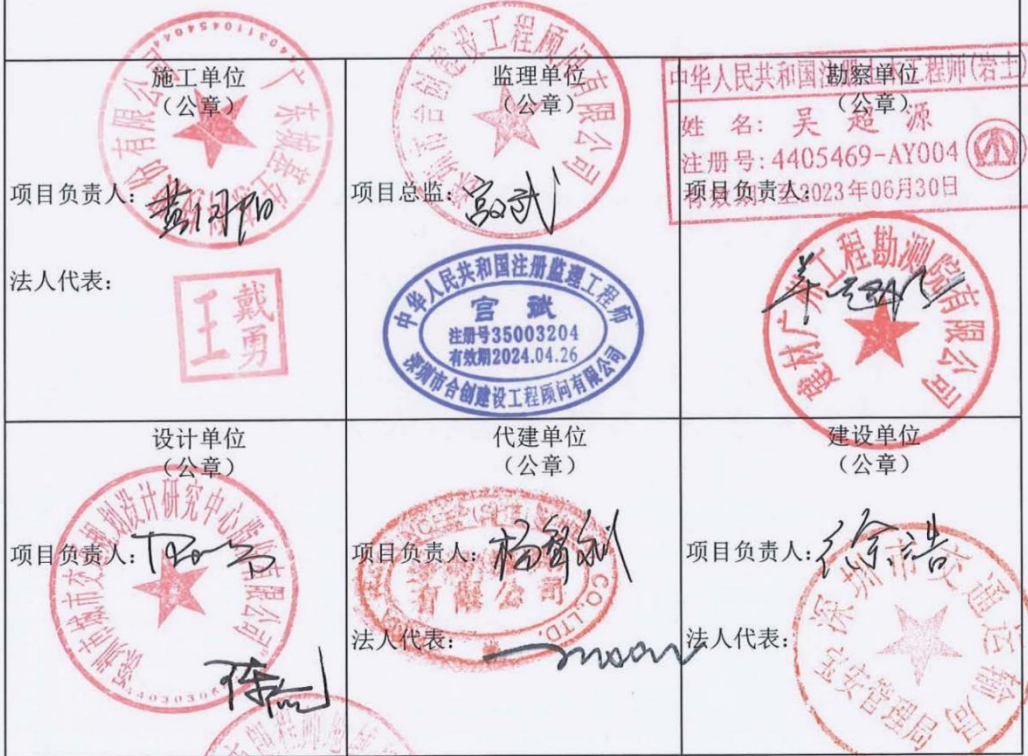 施工单位
（公章）
项目负责人：
法人代表：
王戴勇
监理单位
（公章）
项目总监：宫斌
深圳市合创建设工程顾问有限公司
中华人民共和国注册监理工程师
宫斌
注册号35003204
有效期2024.04.26
深圳市合创建设工程顾问有限公司
勘察单位
（公章）
中华人民共和国注册土木工程师(岩土)
姓 名: 吴超源
注册号: 4405469-AY004
有效期: 至2023年06月30日
项目负责人：
建材广州工程勘测院有限公司
设计单位
（公章）
项目负责人：
深圳市城市交通规划设计研究中心股份有限公司
代建单位
（公章）
项目负责人：
有限公司
CO.,LTD.
法人代表：
建设单位
（公章）
项目负责人：徐浩
法人代表：
深圳市交通运输局
宝安管理局